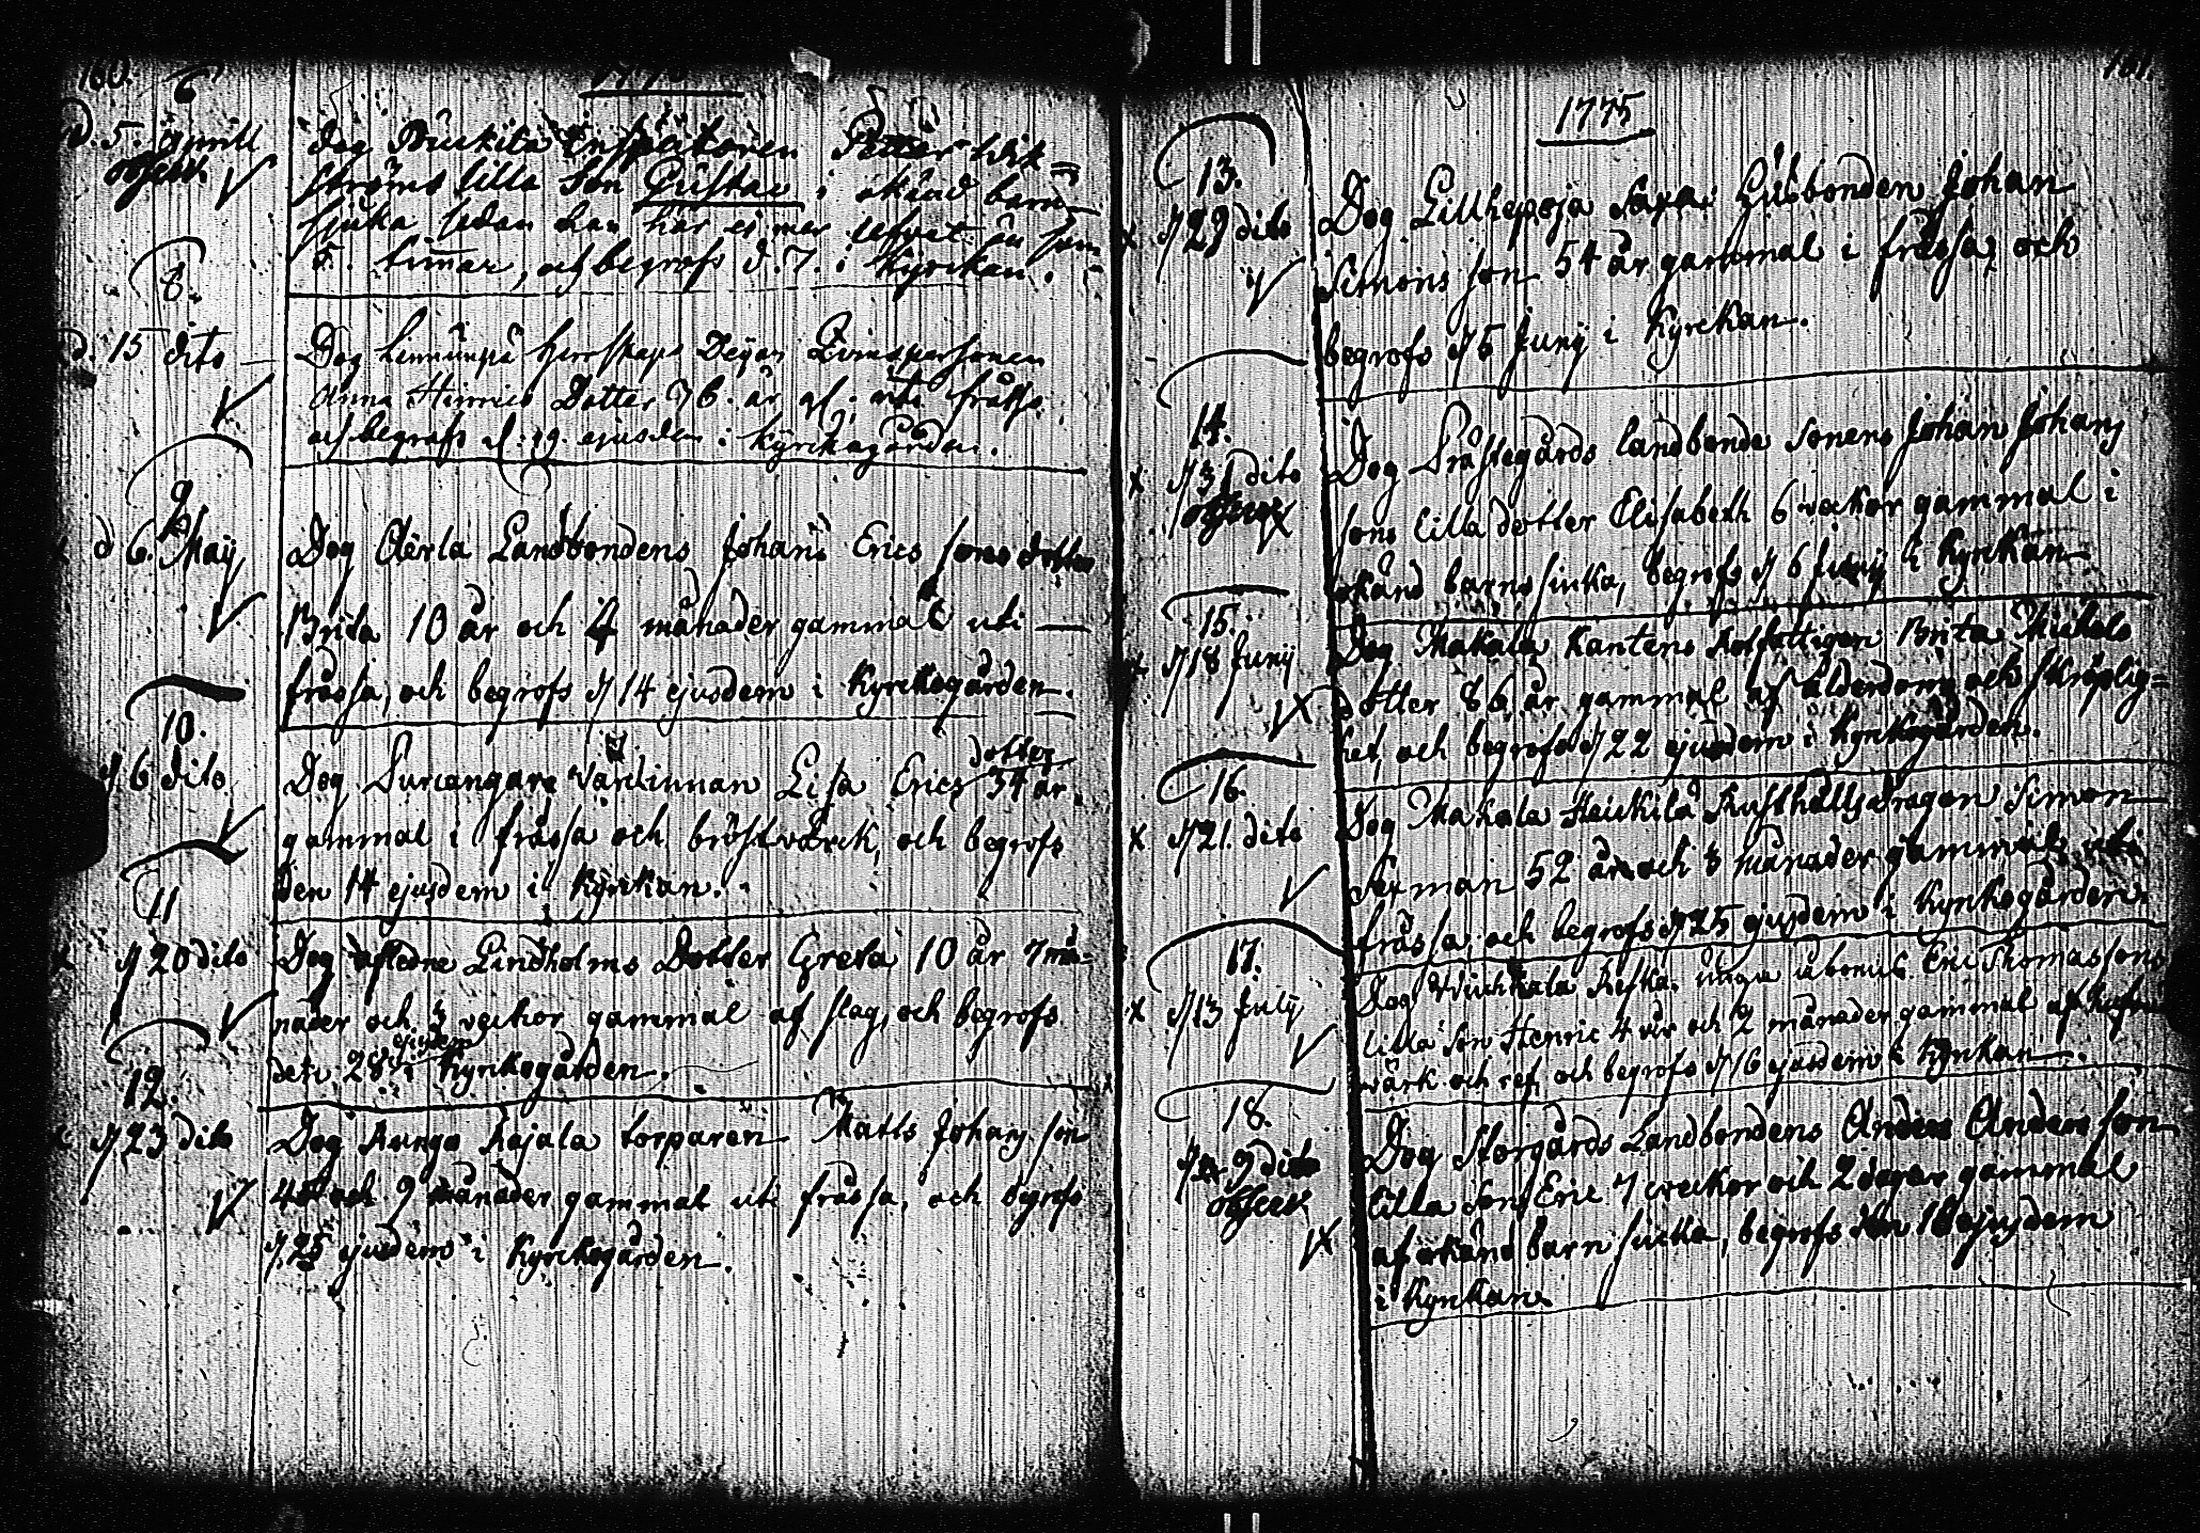 160.
1775
6
d. 5. Aprill
observ.
Dog Buskila Inspectoren Petter Wik-
ströms lilla Son Gustav i okänd barn
sjuka sedan han har ej mer lefvat än som
5. timar, och begrofs d. 7. i Kyrckan.
8.
d. 15 dito
Dog herrskaps Deijan Qvinspersonen
Anna Henrics Dotter 76. år gl: uti fråssa
och begrofs d: 19. ejusdem i Kyrckogården.
9
d 6. Maij
Dog Aerla Landbondens Johans Erics sons dotter
Brita 10 år och 4 månader gammal uti
fråssa, och begrofs d 14 ejusdem i Kyrckogården.
10.
d 6 dito
dotter
Dog Värdinnan Lisa Erics 34 år
gammal i fråssa och bröstvärck, och begrofs
den 14 ejusdem i Kyrckan.
11
x d 20 dito
Dog afledne Lindholms Dotter Greta 10 år 7 må-
nader och 3 veckor gammal af slag, och begrofs
ejusdem
den 28 i Kyrkogården.
12.
x d 23 dito
Dog Kungo Rajala torparen Matts Johans son
och 9 månader gammal uti fråssa, och begrofs
d 25 ejusdem i Kyrckogården.
161.
1775
13.
x d 29 dito
Dog Lillhepoja Saxa Husbonden Johan
Simons son 54 år gammal i fråssa, och
begrofs d 5 Junij i Kyrckan.
14.
x d 31 dito
observ.
Dog Prästegårds landbonde sonens Johan Johans
sons lilla dotter Elisabeth 6 veckor gammal i
okänd barnsiuka, begrofs d 6 Junij i Kyrckan
15.
x d 18 Junij
Dog Makala Kantens Rotfattigen Brita Michels
dotter 86 år gammal af ålderdom och skröplig-
het, och begrofs d 22 ejusdem i Kyrkogården.
16.
x d 21. dito
Dog Makala Heickilä Rusthållsdragon Simon
Saxman 52 år och 3 månader gammal uti
fråssa, och begrofs d 25 ejusdem i Kyrkogården.
17.
x d 13 Julij
Dog unga Eric Thomassons
lilla son Henric 4 år och 2 månader gammal af
värk och ref, och begrofs d 16 ejusdem i Kyrkan.
18.
d 9 dito
observ.
Dog Storgårds Landbondens Anders Anders son
lilla son Eric 7 veckor och 2 dagar gammal
af okänd barn siucka, begrofs den 18 ejusdem
i Kyrkan.